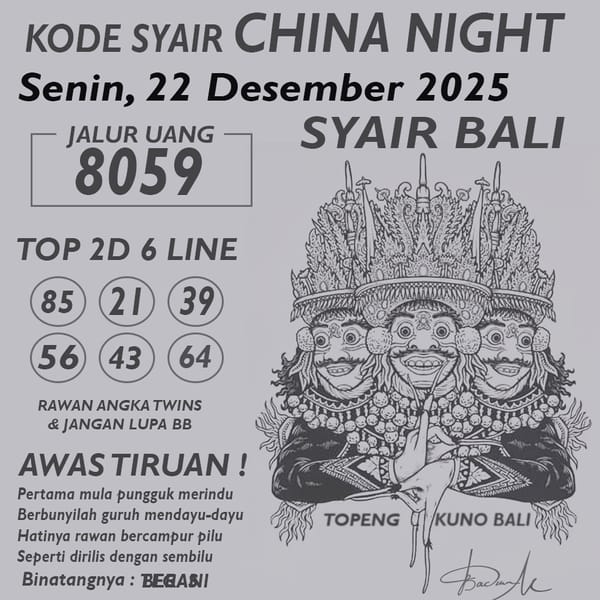 KODE SYAIR CHINA NIGHT
Senin, 22 Desember 2025
SYAIR BALI
JALUR UANG
8059
TOP 2D 6 LINE
85 21 39
56 43 64
RAWAN ANGKA TWINS
& JANGAN LUPA BB
AWAS TIRUAN !
Pertama mula pungguk merindu
Berbunyilah guruh mendayu-dayu
Hatinya rawan bercampur pilu
Seperti dirilis dengan sembilu
Binatangnya :
TOPENG KUNO BALI